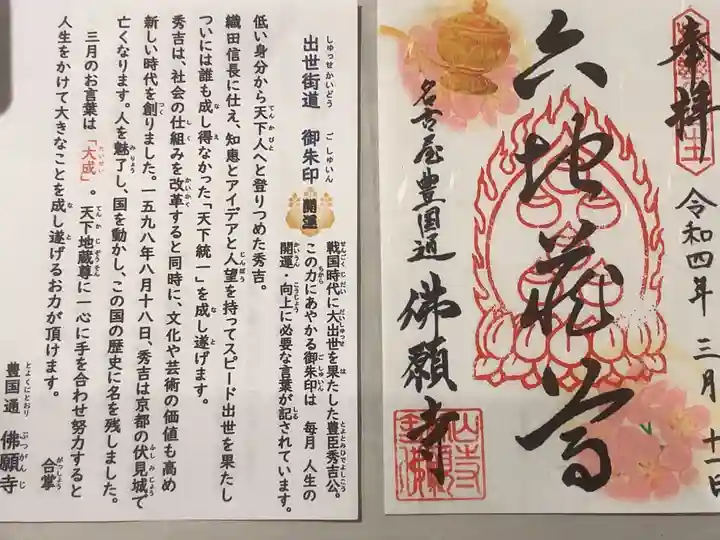 奉拝
令和四年 三月 十二日
六地蔵尊
名古屋豊国通 佛願寺
出世街道 御朱印
開運
戦国時代に大出世を果たした豊臣秀吉公。
この力にあやかる御朱印は 毎月 人生の
開運・向上に必要な言葉が記されています。
低い身分から天下人へと登りつめた秀吉。
織田信長に仕え、知恵とアイデアと人望を持ってスピード出世を果たし
ついには誰も成し得なかった「天下統一」を成し遂げます。
秀吉は、社会の仕組みを改革すると同時に、文化や芸術の価値も高め
新しい時代を創りました。一五九八年八月十八日、秀吉は京都の伏見城で
亡くなります。人を魅了し、国を動かし、この国の歴史に名を残しました。
三月のお言葉は「大成」。天下地蔵尊に一心に手を合わせ努力すると
人生をかけて大きなことを成し遂げるお力が頂けます。
合掌
豊国通 佛願寺